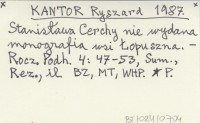 KANTOR Ryszard 1987.
Stanisława Cerchy nie wydana
monografia wsi Łopuszna. –
Rocz. Podh. 4: 47-53, Sum.,
Rez., il BZ, MT, WHP. * P.